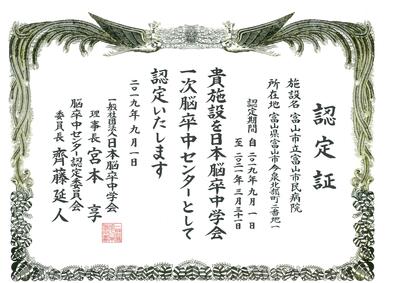 認定証
施設名 富山市立富山市民病院
所在地 富山県富山市今泉北部町二番地一
認定期間 自 二〇一九年 九月 一日
至 二〇二一年 三月三十一日
貴施設を日本脳卒中学会
一次脳卒中センターとして
認定いたします
二〇一九年 九月 一日
一般社団法人日本脳卒中学会
理事長 宮本 享
脳卒中センター認定委員会
委員長 齊藤延人